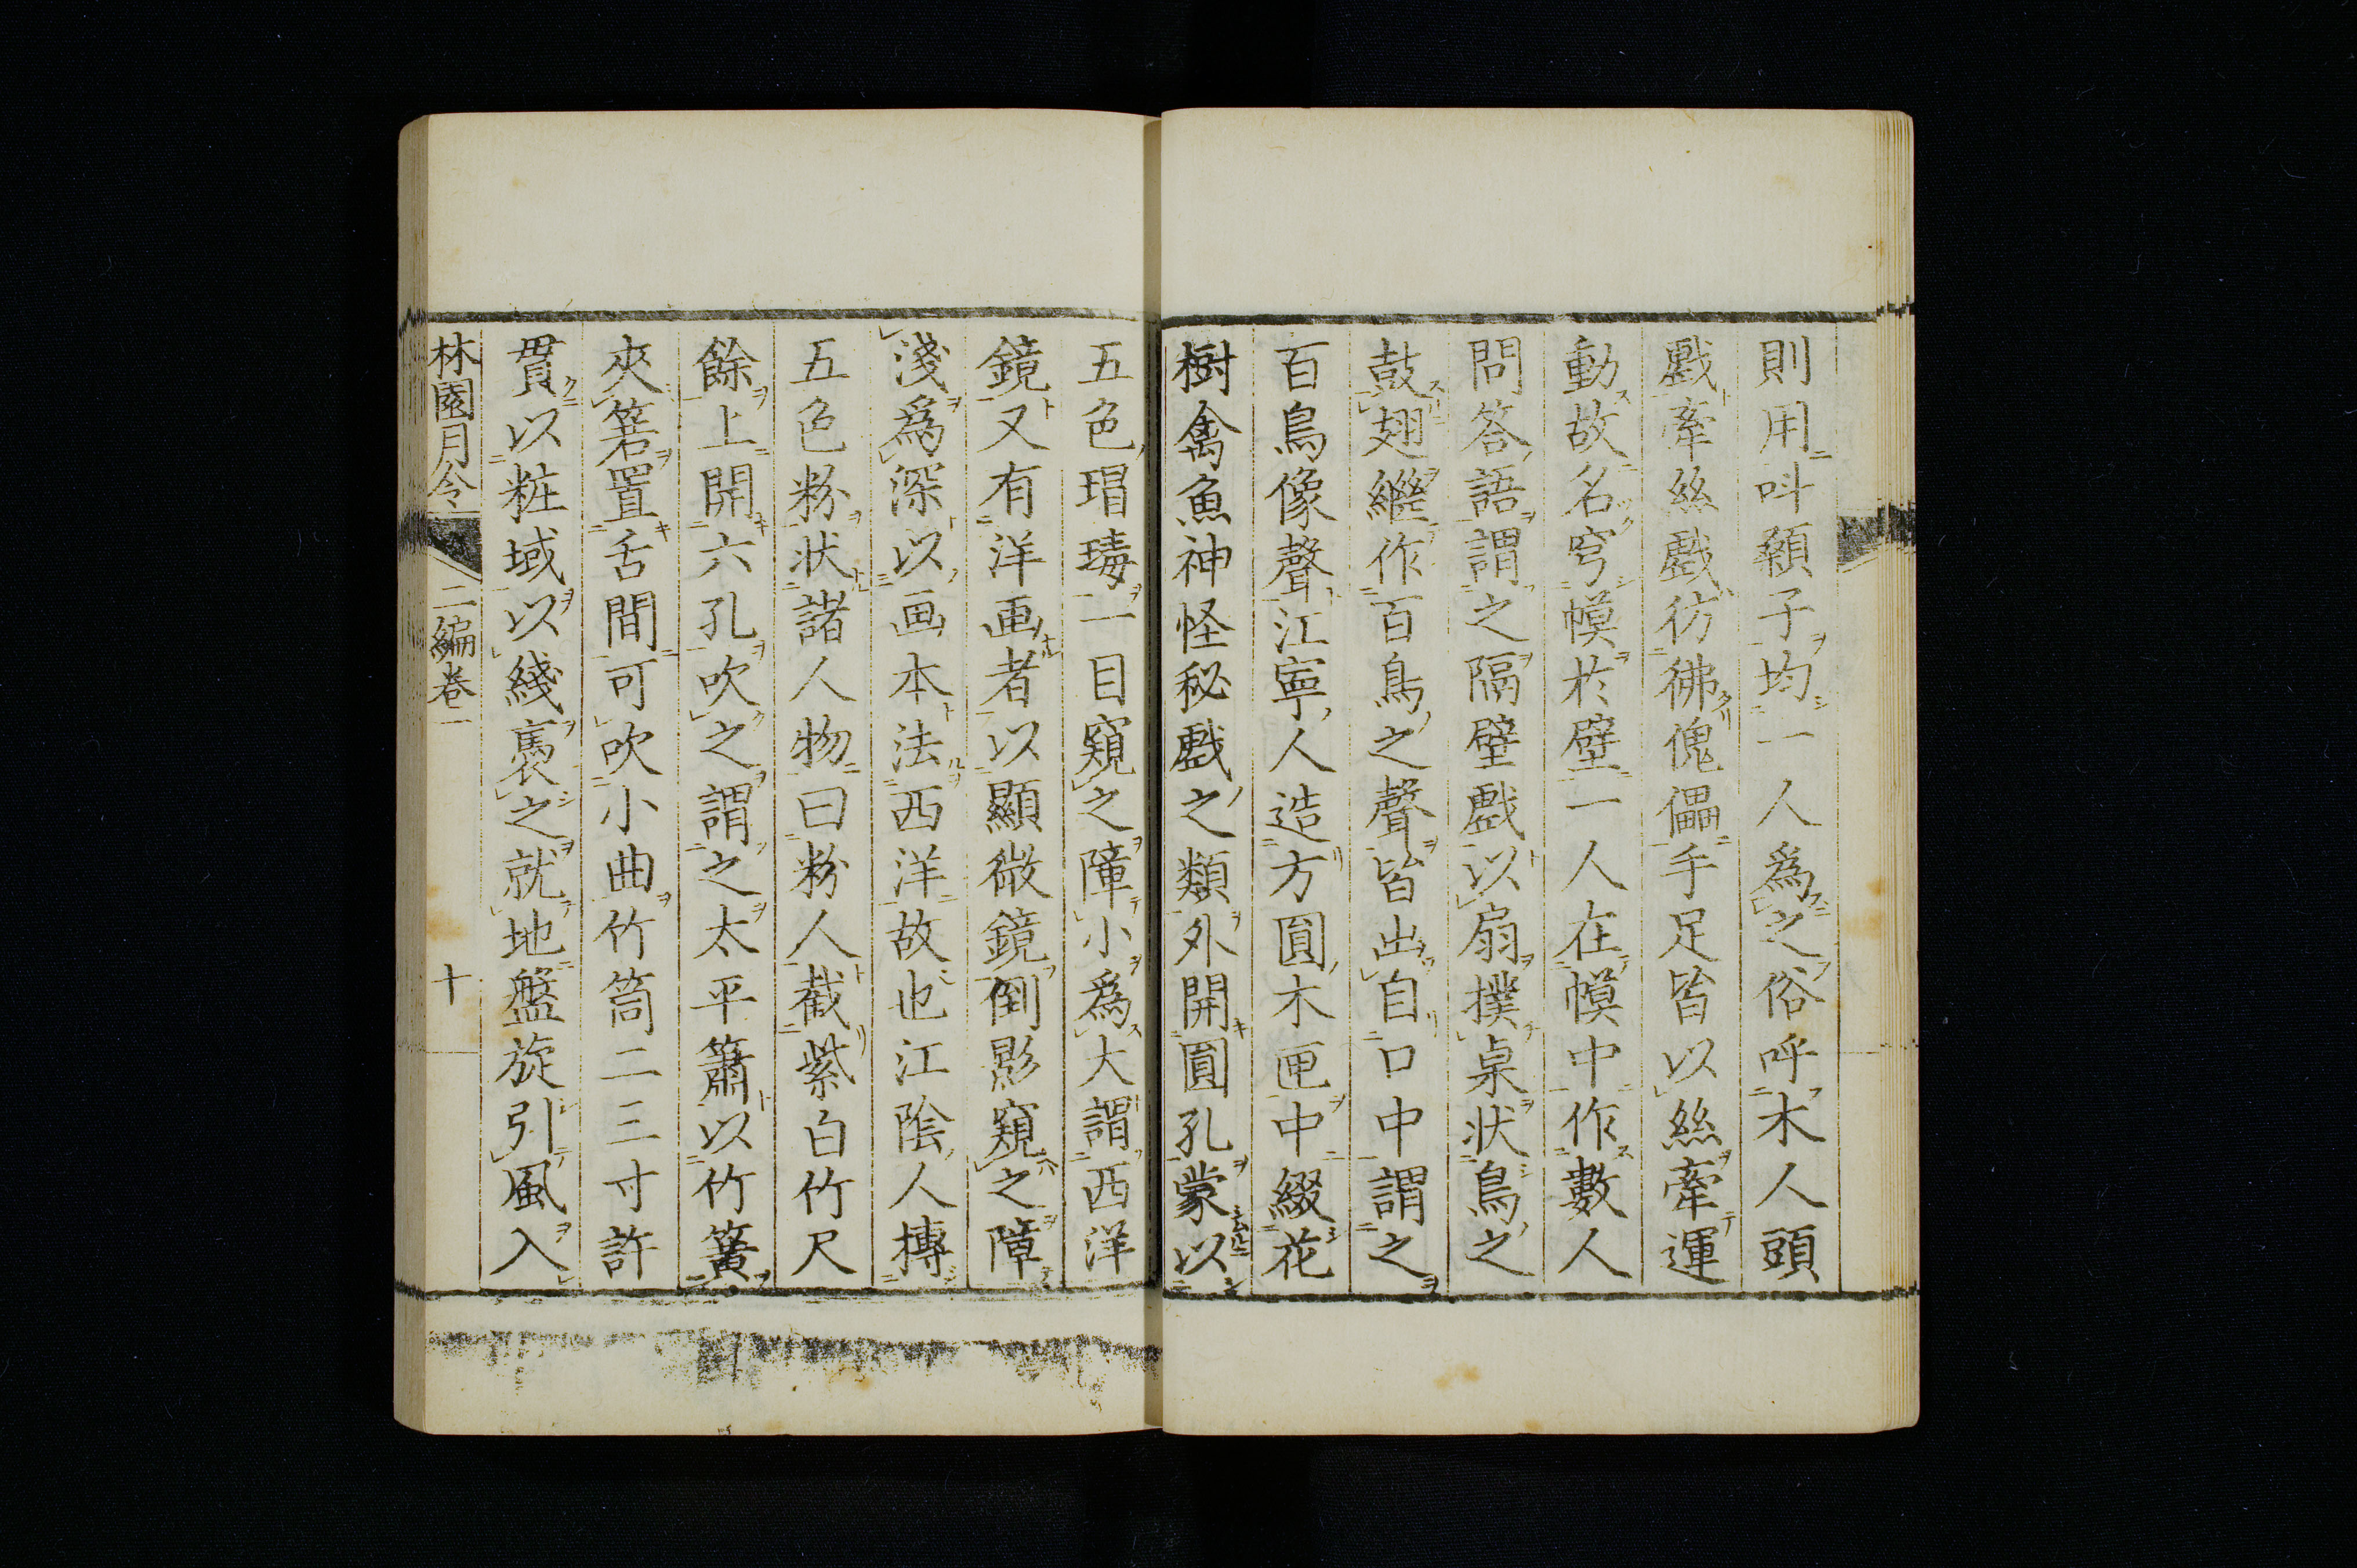 則用叫顙子均一人爲之俗呼木人頭
戲牽絲戲彷彿傀儡手足皆以絲牽運
動故名穹幙於壁一人在幙中作數人
問答語謂之隔壁戲以扇撲桌状鳥之
鼓翅繼作百鳥之聲皆出自口中謂之
百鳥像聲江寧人造方圓木匣中綴花
樹禽魚神怪秘戲之類外開圓孔蒙以
五色瑁一目窺之障小爲大謂西洋
鏡又有洋画者以顯微鏡倒影窺之障
淺爲深以画本法西洋故也江陰人摶
五色粉状諸人物曰粉人截紫白竹尺
餘上開六孔吹之謂之太平簫以竹簧
夾箬置舌間可吹小曲竹筒二三寸許
貫以粧域以綫褭之就地盤旋引風入
林園月令
二編卷一
十